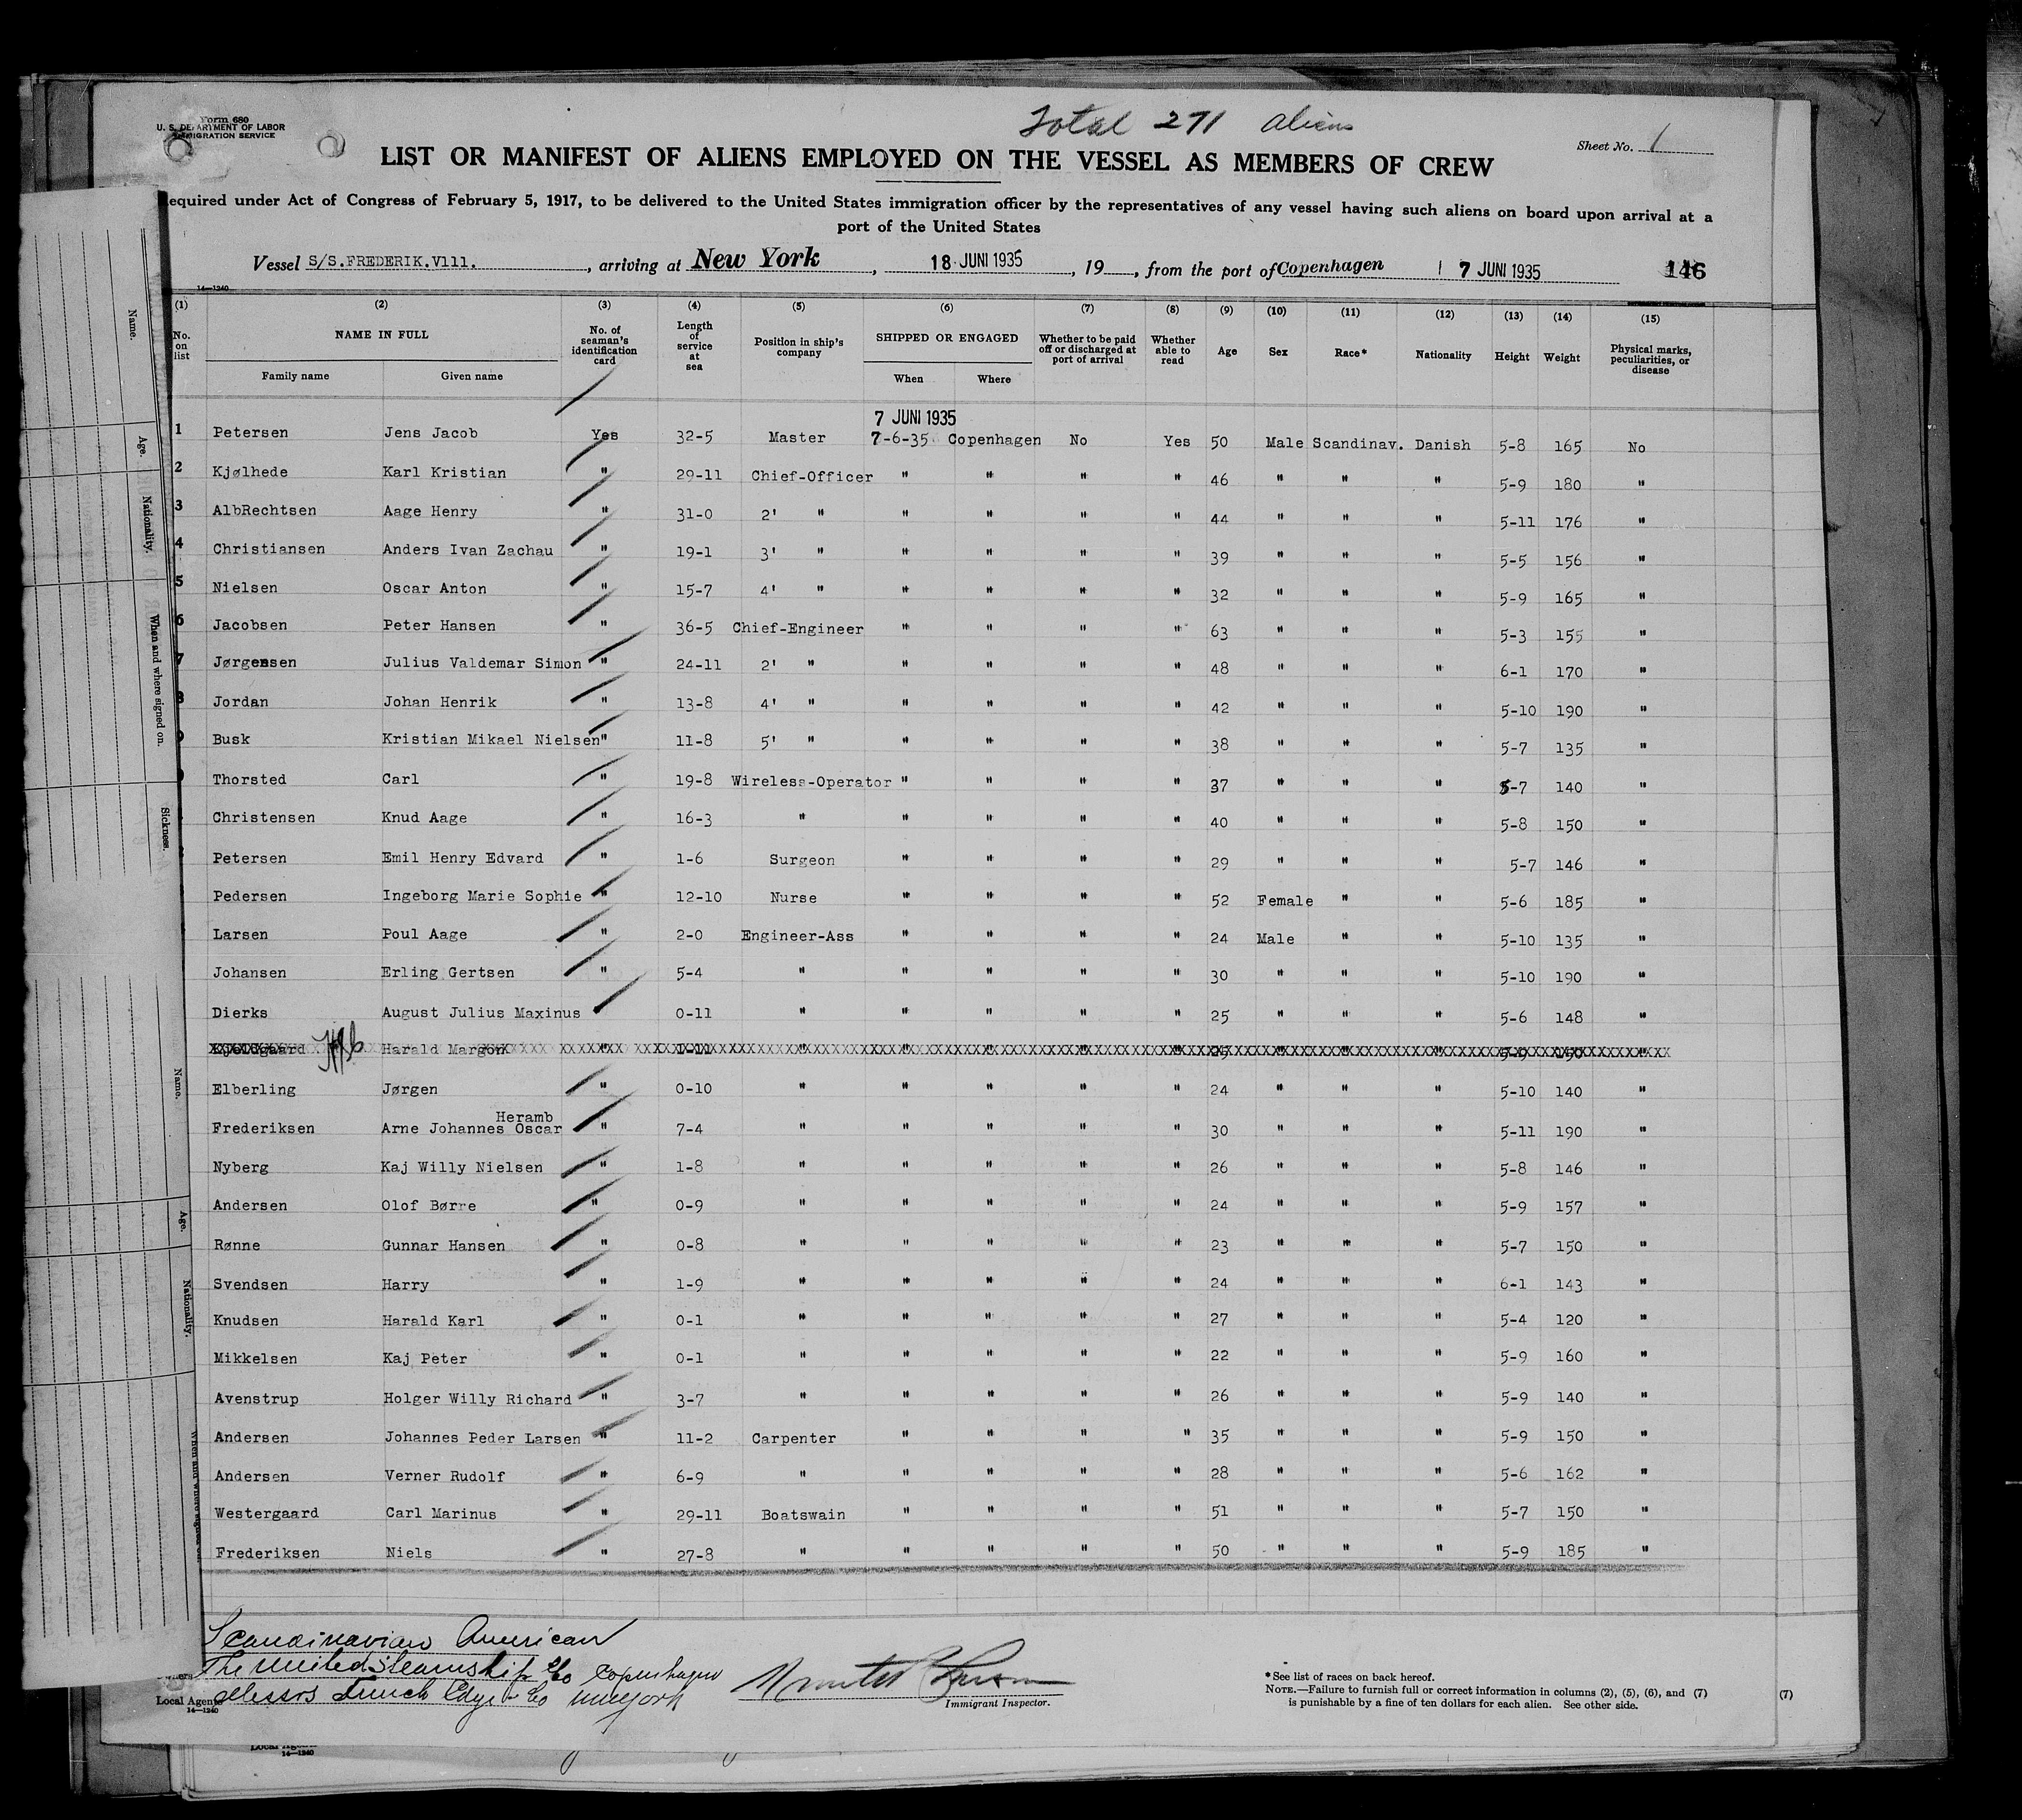 Total 271 aliens
Form 680
U. S. DEPARTMENT OF LABOR
IMMIGRATION SERVICE
Sheet No. 1
LIST OR MANIFEST OF ALIENS EMPLOYED ON THE VESSEL AS MEMBERS OF CREW
equired under Act of Congress of February 5, 1917, to be delivered to the United States immigration officer by the representatives of any vessel having such aliens on board upon arrival at a
port of the United States
Vessel S/S.FREDERIK.V111. , arriving at New York , 18 JUNI 1935 , 19 , from the port of Copenhagen 7 JUNI 1935 146
14—1240
(1) (2) (3) (4) (5) (6) (7) (8) (9) (10) (11) (12) (13) (14) (15)
No. on list NAME IN FULL Family name Given name No. of seaman's identification card Length of service at sea Position in ship's company SHIPPED OR ENGAGED When Where Whether to be paid off or discharged at port of arrival Whether able to read Age Sex Race* Nationality Height Weight Physical marks, peculiarities, or disease
7 JUNI 1935
1 Petersen Jens Jacob Yes 32-5 Master 7-6-35 Copenhagen No Yes 50 Male Scandinav. Danish 5-8 165 No
2 Kjølhede Karl Kristian " 29-11 Chief-Officer " " " " 46 " " " 5-9 180 "
3 AlbRechtsen Aage Henry " 31-0 2' " " " " " 44 " " " 5-11 176 "
4 Christiansen Anders Ivan Zachau " 19-1 3' " " " " " 39 " " " 5-5 156 "
5 Nielsen Oscar Anton " 15-7 4' " " " " " 32 " " " 5-9 165 "
6 Jacobsen Peter Hansen " 36-5 Chief-Engineer " " " " 63 " " " 5-3 155 "
7 Jørgensen Julius Valdemar Simon " 24-11 2' " " " " " 48 " " " 6-1 170 "
8 Jordan Johan Henrik " 13-8 4' " " " " " 42 " " " 5-10 190 "
Busk Kristian Mikael Nielsen " 11-8 5' " " " " " 38 " " " 5-7 135 "
Thorsted Carl " 19-8 Wireless-Operator " " " " 37 " " " 5-7 140 "
Christensen Knud Aage " 16-3 " " " " " 40 " " " 5-8 150 "
Petersen Emil Henry Edvard " 1-6 Surgeon " " " " 29 " " " 5-7 146 "
Pedersen Ingeborg Marie Sophie " 12-10 Nurse " " " " 52 Female " " 5-6 185 "
Larsen Poul Aage " 2-0 Engineer-Ass " " " " 24 Male " " 5-10 135 "
Johansen Erling Gertsen " 5-4 " " " " " 30 " " " 5-10 190 "
Dierks August Julius Maxinus 0-11 " " " " " 25 " " " 5-6 148 "
Kjeldgaard Harald Margon " 1-11 " " " " " 25 " " " 5-9 150 "
Elberling Jørgen " 0-10 " " " " " 24 " " " 5-10 140 "
Heramb
Frederiksen Arne Johannes Oscar " 7-4 " " " " " 30 " " " 5-11 190 "
Nyberg Kaj Willy Nielsen " 1-8 " " " " " 26 " " " 5-8 146 "
Andersen Olof Børre " 0-9 " " " " " 24 " " " 5-9 157 "
Rønne Gunnar Hansen " 0-8 " " " " " 23 " " " 5-7 150 "
Svendsen Harry " 1-9 " " " " " 24 " " " 6-1 143 "
Knudsen Harald Karl " 0-1 " " " " " 27 " " " 5-4 120 "
Mikkelsen Kaj Peter " 0-1 " " " " " 22 " " " 5-9 160 "
Avenstrup Holger Willy Richard " 3-7 " " " " " 26 " " " 5-9 140 "
Andersen Johannes Peder Larsen " 11-2 Carpenter " " " " 35 " " " 5-9 150 "
Andersen Verner Rudolf " 6-9 " " " " " 28 " " " 5-6 162 "
Westergaard Carl Marinus " 29-11 Boatswain " " " " 51 " " " 5-7 150 "
Frederiksen Niels " 27-8 " " " " " 50 " " " 5-9 185 "
Scandinavian American
The United Steamship Co Copenhagen
Local Agents Messrs Funch Edye & Co New York
14—1240
Immigrant Inspector.
*See list of races on back hereof.
NOTE.—Failure to furnish full or correct information in columns (2), (5), (6), and (7)
is punishable by a fine of ten dollars for each alien. See other side.
(7)
14—1240
Name.
Age.
Nationality.
When and where signed on.
Sickness.
Name.
Age.
Nationality.